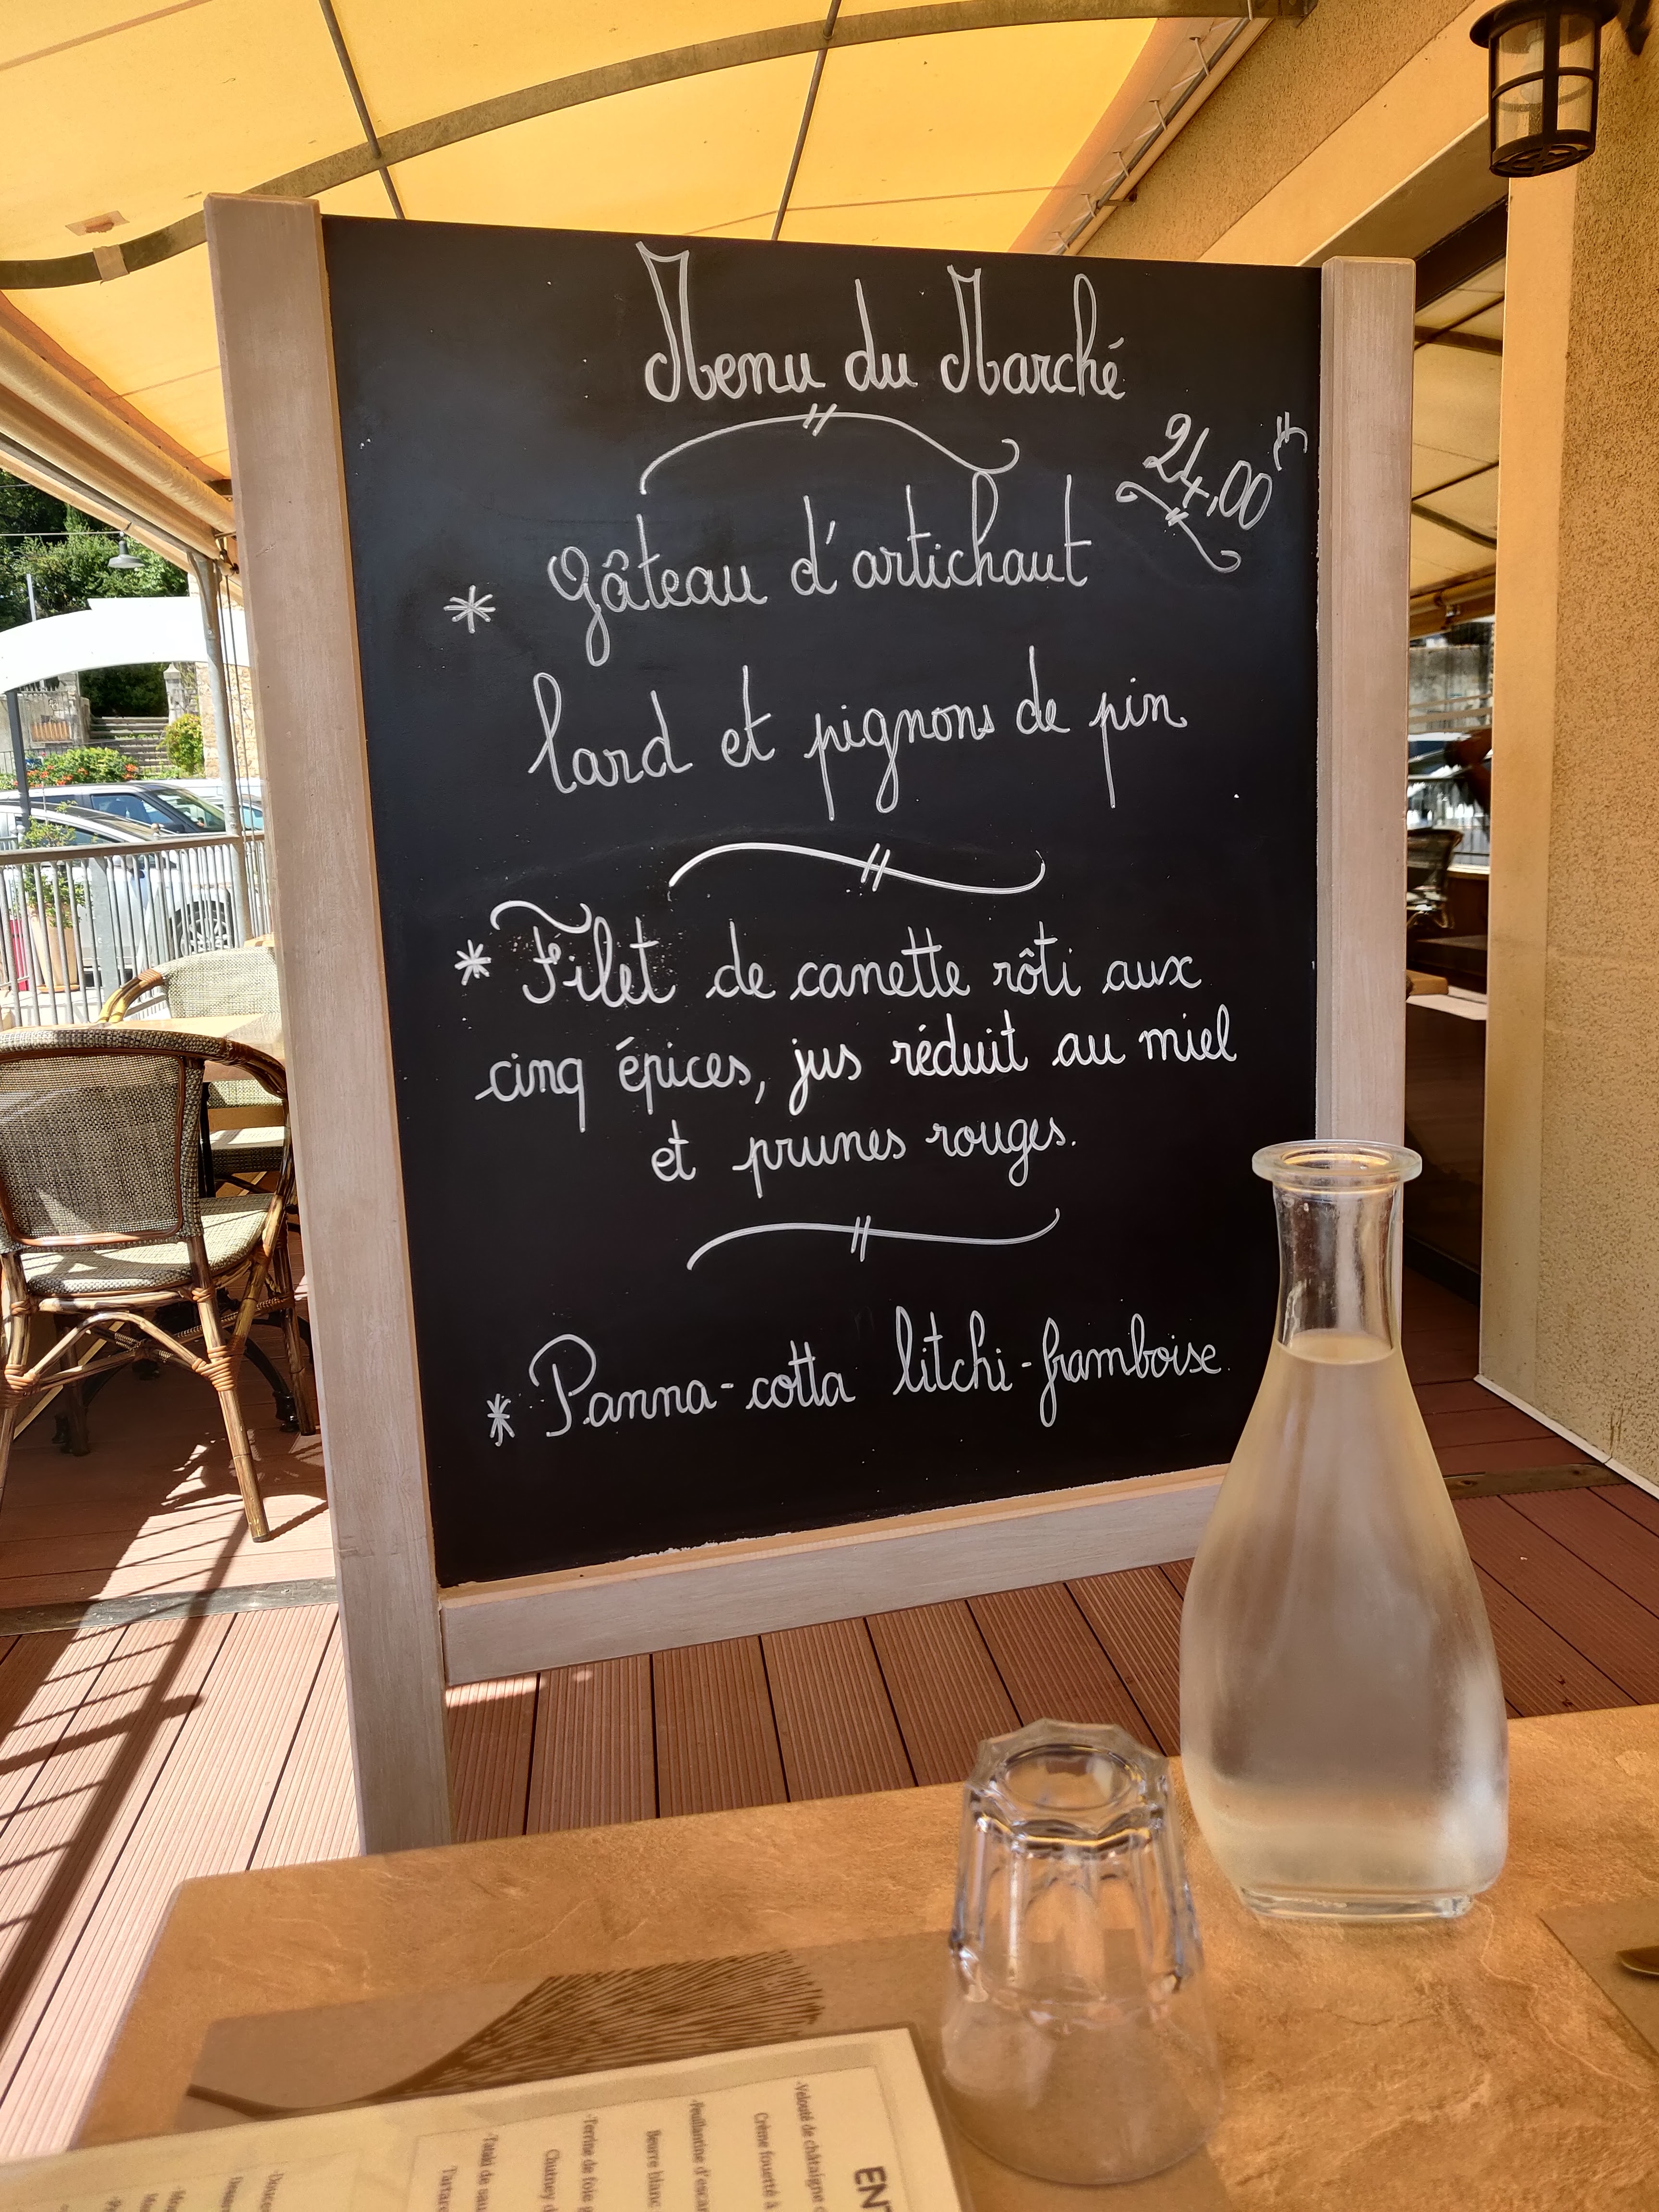 Menu du Marché
24,00 €
* Gâteau d'artichaut
lard et pignons de pin
* Filet de canette rôti aux
cinq épices, jus réduit au miel
et prunes rouges.
* Panna-cotta litchi-framboise
ENT
-Velouté de châtaigne
Crème fouetté à
-Feuillantine d'escar
Beurre blanc
-Terrine de foie g
Chutney d
-Tataki de sau
Tartare